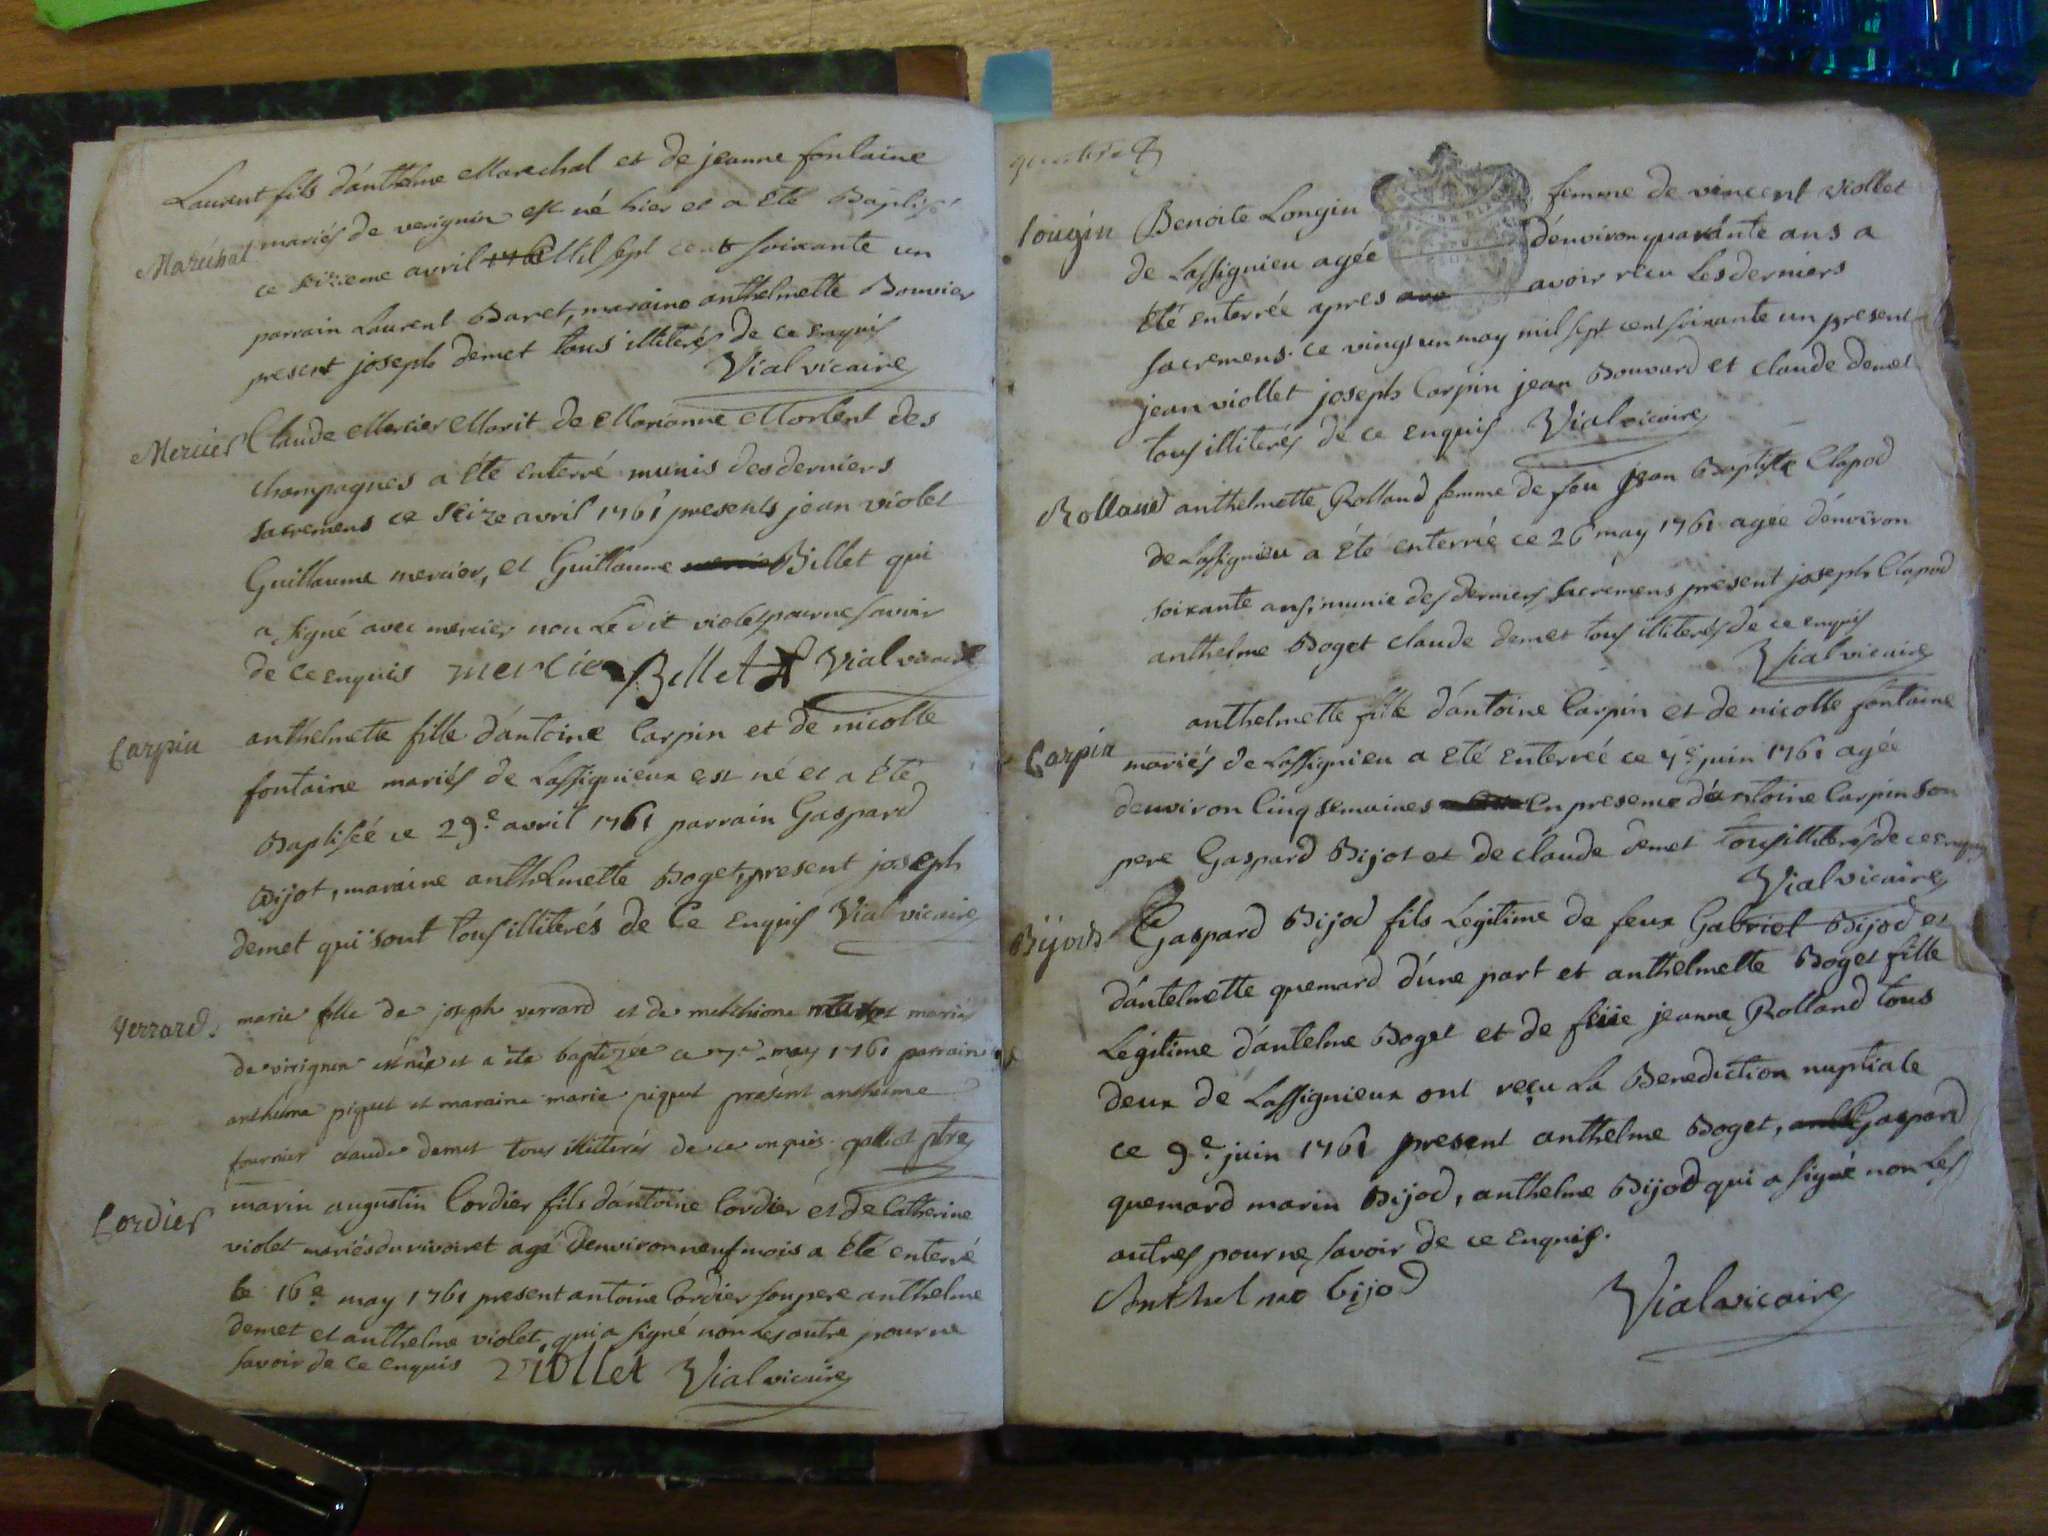 Laurent fils d'anthelme Marechal et de jeanne fontaine
Maréchal
mariés de verignin est né hier et a Eté Baptisé
ce seizieme avril Mil sept cent soixante un
parrain Laurent Baret, maraine anthelmette Bouvier
present joseph demet tous illiterés de ce enquis
Vial vicaire
Mercier
Claude Mercier Marit de Marianne Morlent des
champagnes a Eté Enterré munis des derniers
sacremens ce seize avril 1761 presents jean violet
Guillaume mercier, et Guillaume Billet qui
a signé avec mercier non Le dit violet pour ne savoir
de ce enquis mercier Billet Vial vicaire
Carpin
anthelmette fille d'antoine Carpin et de nicolle
fontaine mariés de Lassignieux est né et a Eté
Baptisée ce 29e avril 1761 parrain Gaspard
Bijot, maraine anthelmette Boget, present joseph
demet qui sont tous illiterés de Ce Enquis Vial vicaire
Verrard.
marie fille de joseph verrard et de melchione mariés
de virignin est née et a ete baptizée ce 7e may 1761 parrain
anthelme piquet et maraine marie piquet présent anthelme
fournier claude demet tous illiterés de ce enquis. ptre
Cordier
marin augustin Cordier fils d'antoine Cordier et de Catherine
violet mariés du rivoiret agé d'environ neuf mois a Eté enterré
le 16e may 1761 present antoine Cordier son pere anthelme
demet et anthelme violet, qui a signé non Les autre pour ne
savoir de ce enquis viollet Vial vicaire
Longin
Benoite Longin femme de vincent viollet
de Lassignieu agée d'environ quarante ans a
Eté enterrée apres avoir reçu Les derniers
sacremens. ce vingt un may mil sept cent soixante un present
jean viollet joseph Carpin jean Bouvard et claude demet
tous illiterés de ce enquis Vial vicaire
Rolland
anthelmette Rolland femme de feu jean Baptiste Clapod
de Lassignieu a Eté enterrée ce 26 may 1761 agée d'environ
soixante ans, munie des derniers sacremens present joseph Clapod
anthelme Boget claude demet tous illiterés de ce enquis
Vial vicaire
anthelmette fille d'antoine Carpin et de nicolle fontaine
Carpin
mariés de Lassignieu a Eté Enterreé ce 7e juin 1761 agée
d'environ Cinq semaines En presence d'antoine Carpin son
pere Gaspard Bijot et de claude demet tous illiterés de ce enquis
Vial vicaire
Bijods
Gaspard Bijod fils Legitime de feux Gabriel Bijod et
d'antelmette quemard d'une part et anthelmette Boget fille
Legitime d'antelme Boget et de feüe jeanne Rolland tous
deux de Lassignieux ont reçu La Benediction nuptiale
ce 9e juin 1761 present anthelme Boget, Gaspard
quemard marin Bijod, anthelme Bijod qui a signé non Les
autres pour ne savoir de ce Enquis.
Anthelme bijod
Vial vicaire